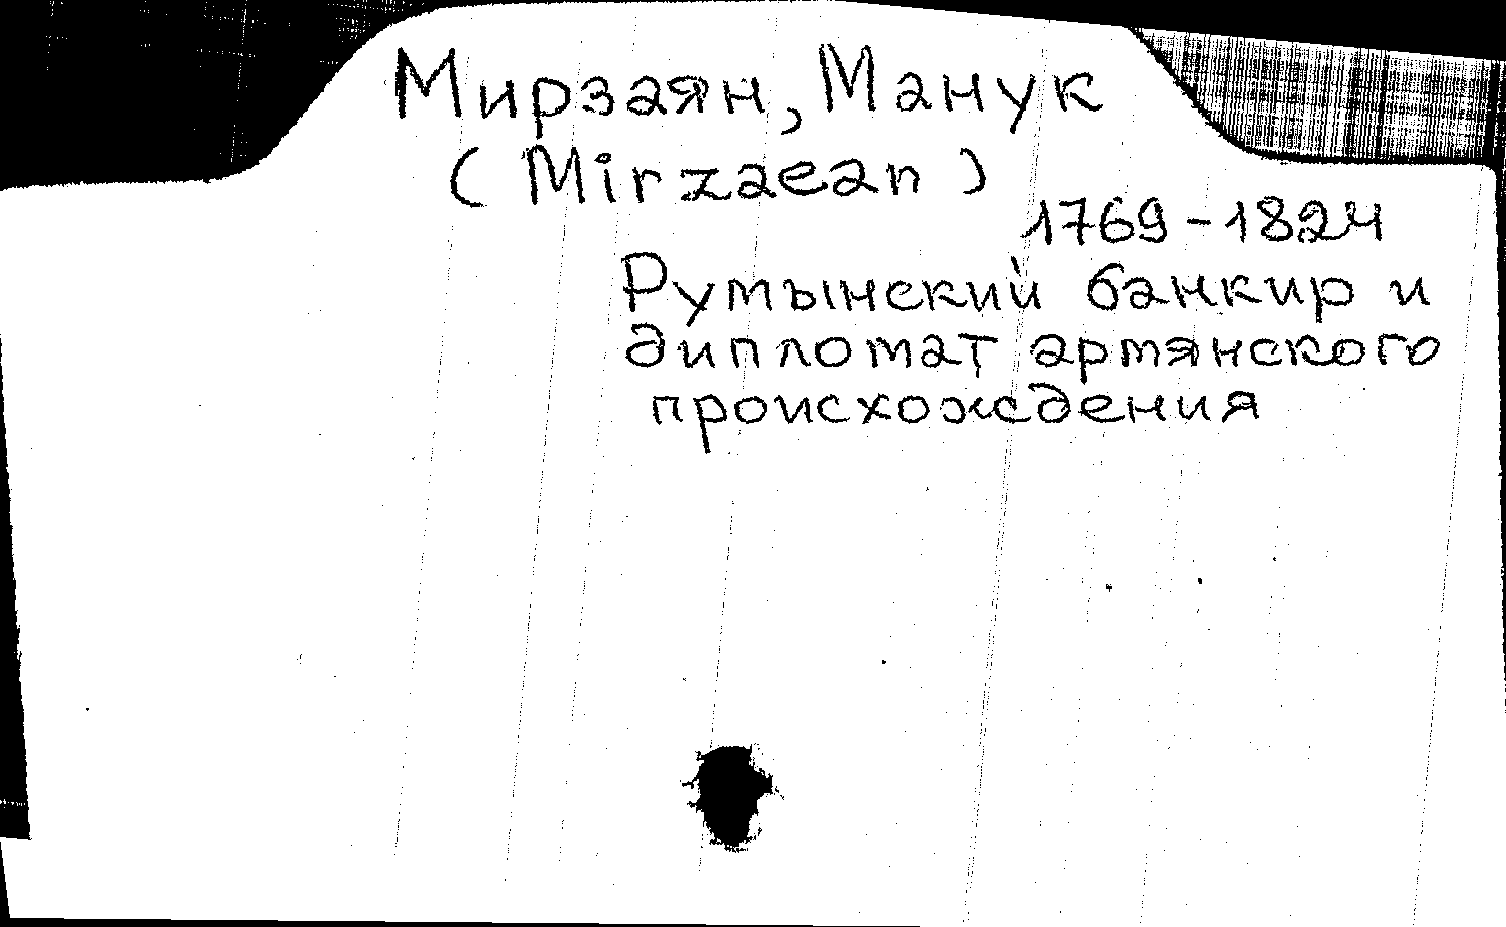 Мирзаян, Манук
(Mirzaean)
1769-1824
Румынский банкир и
дипломат армянского
происхождения